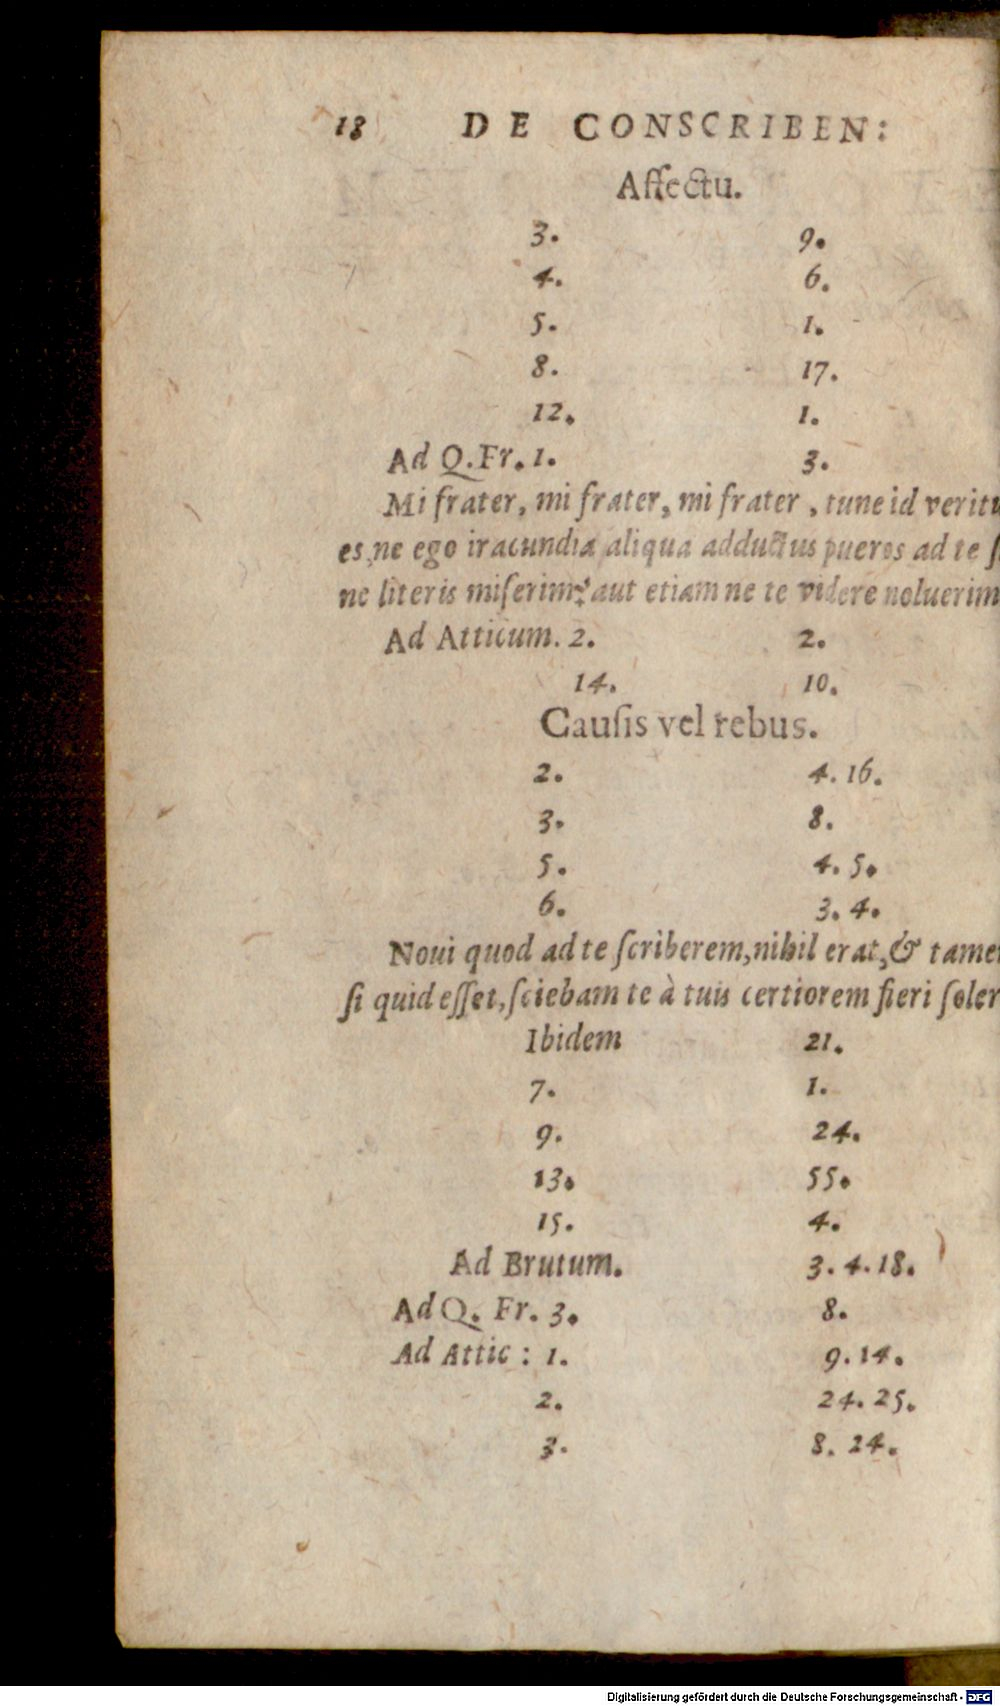 18 DE CONSCRIBEN:
Affectu.
3. 9.
4. 6.
5. 1.
8. 17.
12. 1.
Ad Q. Fr. 1. 3.
Mi frater, mi frater, mi frater, tune id veritu
es, ne ego iracundia aliqua adductus pueros ad te ſ
ne literis miſerim? aut etiam ne te videre noluerim
Ad Atticum. 2. 2.
14. 10.
Cauſis vel rebus.
2. 4. 16.
3. 8.
5. 4. 5.
6. 3. 4.
Noui quod ad te ſcriberem, nihil erat, & tame
ſi quid eſſet, ſciebam te à tuis certiorem fieri ſoler
Ibidem 21.
7. 1.
9. 24.
13. 55.
15. 4.
Ad Brutum. 3. 4. 18.
Ad Q. Fr. 3. 8.
Ad Attic: 1. 9. 14.
2. 24. 25.
3. 8. 24.
Digitalisierung gefördert durch die Deutsche Forschungsgemeinschaft - DFG